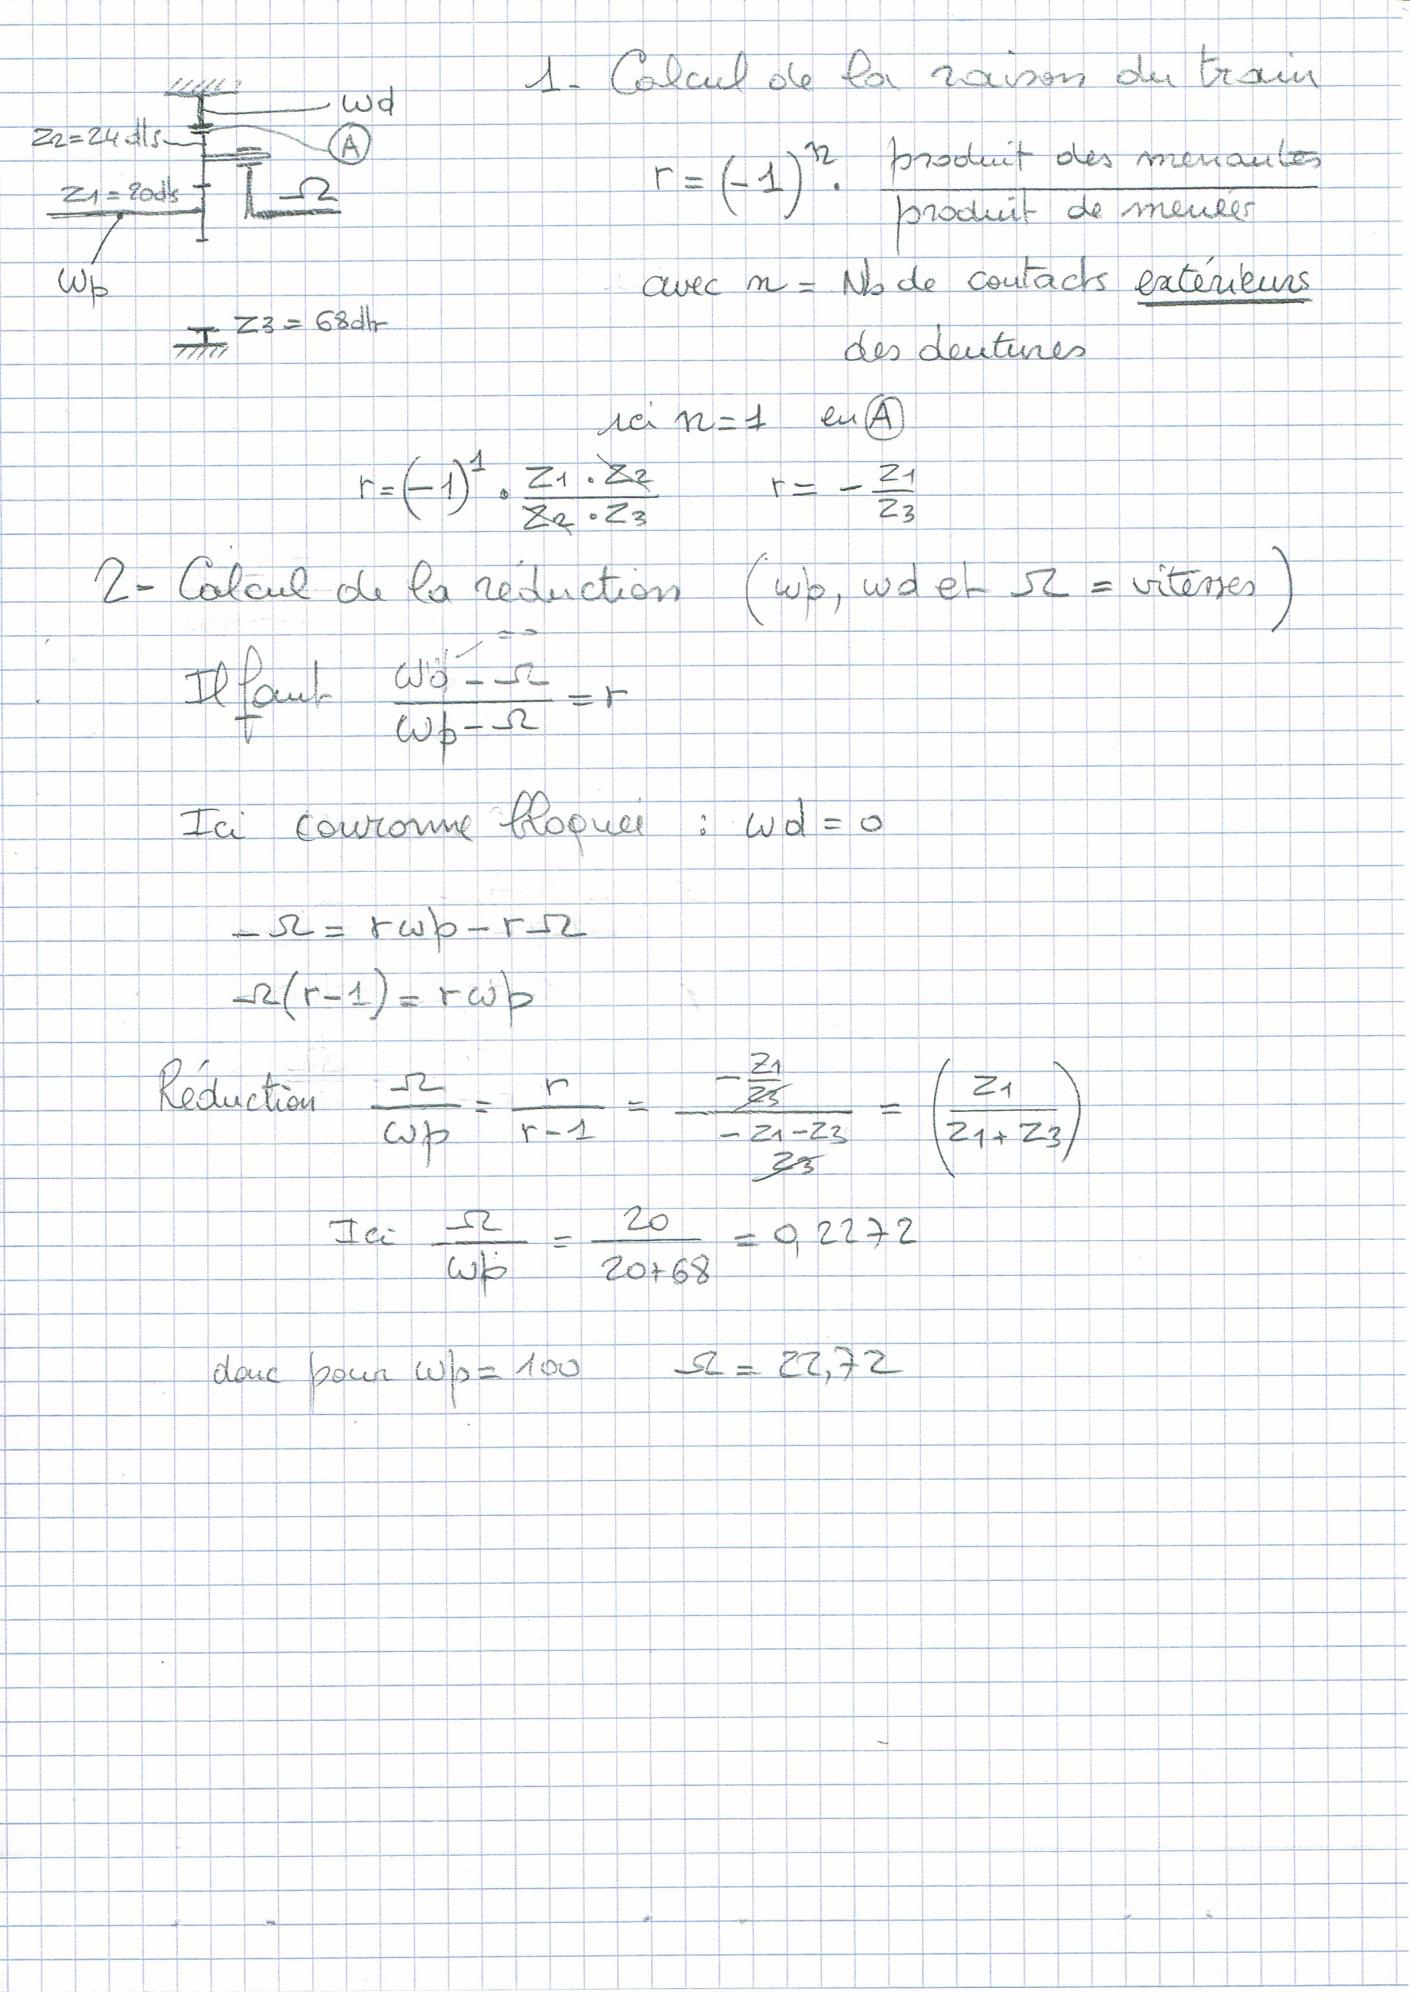 1- Calcul de la raison du train
wd
Z2=24dts
A
Z1=20dts
Ω
wp
Z3=68dts
r = (-1)^n . produit des menantes / produit de menées
avec n = Nb de contacts extérieurs
des dentures
ici n=1 en A
r = (-1)^1 . Z1 . Z2 / Z2 . Z3 r = - Z1 / Z3
2- Calcul de la réduction (wp, wd et Ω = vitesses)
=0
Il faut wd - Ω / wp - Ω = r
Ici couronne bloquée : wd = 0
-Ω = rwp - rΩ
Ω(r-1) = rwp
Réduction Ω / wp = r / r-1 = - Z1 / Z3 / -Z1-Z3 / Z3 = (Z1 / Z1+Z3)
Ici Ω / wp = 20 / 20+68 = 0,2272
donc pour wp = 100 Ω = 22,72